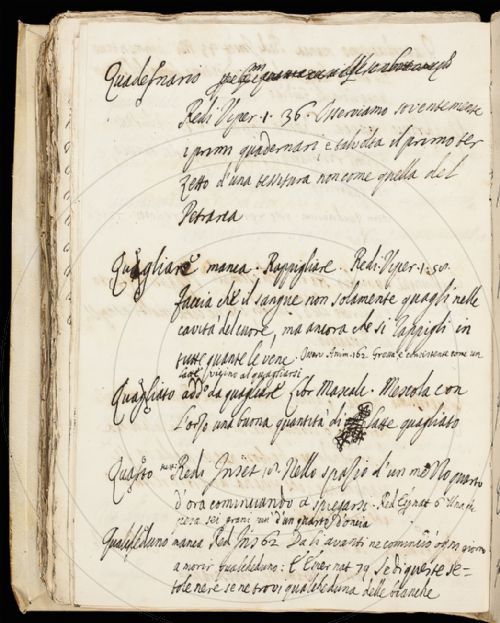 Quadernario
Redi Viper. 1. 36. Osserviamo soventemente
i primi quadernari, e talvolta il primo ter
zetto d'una tessitura non come quella del
Petrarca
Quagliare manca. Rappigliare. Redi. Viper. 1.
faccia che il sangue non solamente quagli nelle
cavità del cuore, ma ancora che si rappigli in
tutte quante le vene. Anim. 162. Grossa e consistente come un
latte vicino al quagliarsi
Quagliato add. da quagliare. Mescola con
l'orzo una buona quantità di latte quagliato
Quarto Redi Inset. Nello spazio d'un mezzo quarto
d'ora cominciando a spiegarsi. Red. 6
pesa sei grani un d'un quarto d'oncia
Qualcheduno manca Red. Ins. 62 Da lì avanti ne cominciò ogni giorno
a morir qualcheduno: E 79 Se di queste se-
tole nere se ne trovi qualcheduna delle bianche